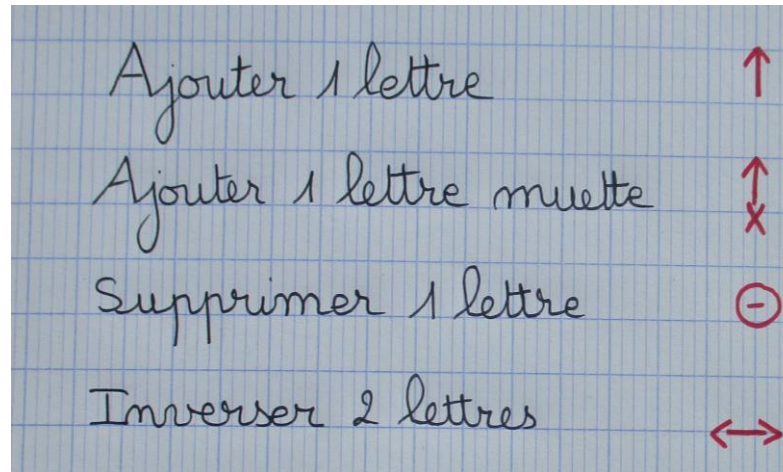 Ajouter 1 lettre ↑
Ajouter 1 lettre muette ↑x
Supprimer 1 lettre ⊖
Inverser 2 lettres ↔